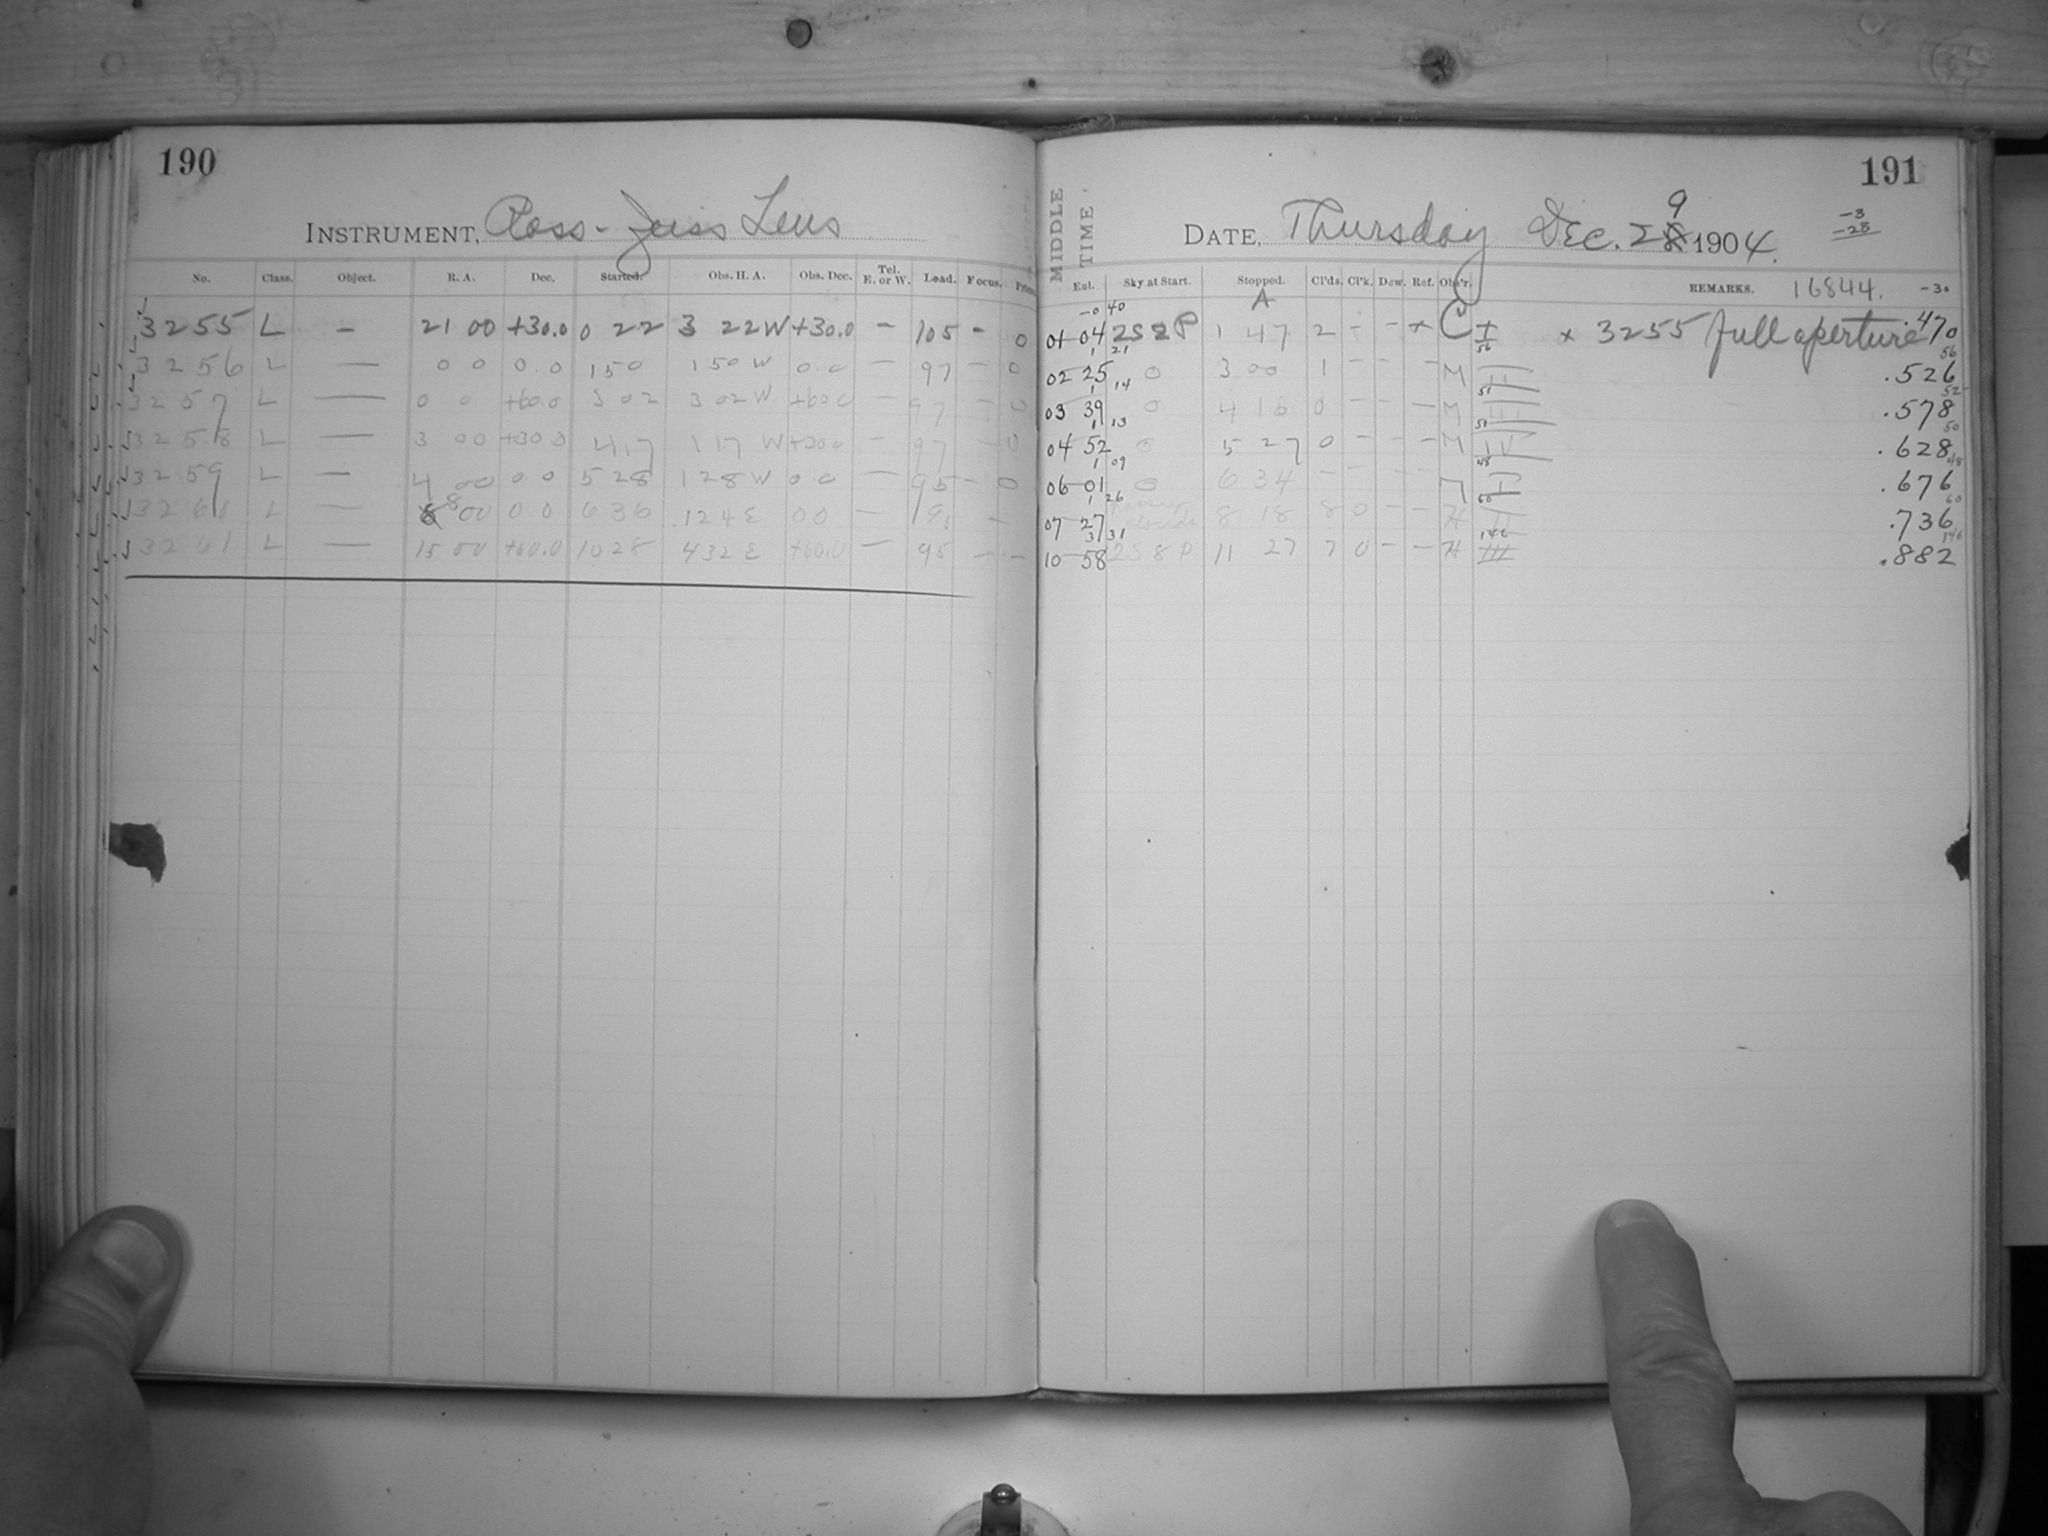 190
INSTRUMENT, Ross-Zeiss Lens
No. Class. Object. R. A. Dec. Started. Obs. H. A. Obs. Dec. Tel. E. or W. Load. Focus.
3255 L – 21 00 +30.0 0 22 3 22W +30.0 – 105 – 0
3256 L — 0 0 0.0 150 150 W 0.0 — 97 – 0
3257 L — 0 0 +60.0 302 302W +60.0 – 97 – 0
3258 L — 3 00 +30.0 417 117 W +30.0 – 97 – 0
3259 L — 4 00 0 0 528 128W 0.0 — 95 – 0
3260 L — 8 00 0 0 636 124E 00 — 95 –
3261 L — 15 00 +60.0 1028 432 E +60.0 — 95 – –
191
MIDDLE TIME
DATE, Thursday Dec. 29 1904.
-3
-28
Sky at Start. Stopped. Cl'ds. Cl'k. Dew. Ref. Obs'r. REMARKS. 16844. -30
-0 40 A
01 04 2S2P 1 47 2 – – x C I x 3255 full aperture .470
1 21 56 56
02 25 0 3 00 1 – – – M II .526
1 14 52
03 39 0 4 16 0 – – – M III .578
1 13 50
04 52 0 5 27 0 – – – M IV .628
1 09 48 48
06 01 0 6 34 – – – – I .676
1 26 60 60
07 27 8 18 8 0 – – H II .736
3 31 146 146
10 58 2S8P 11 27 7 0 – – H III .882